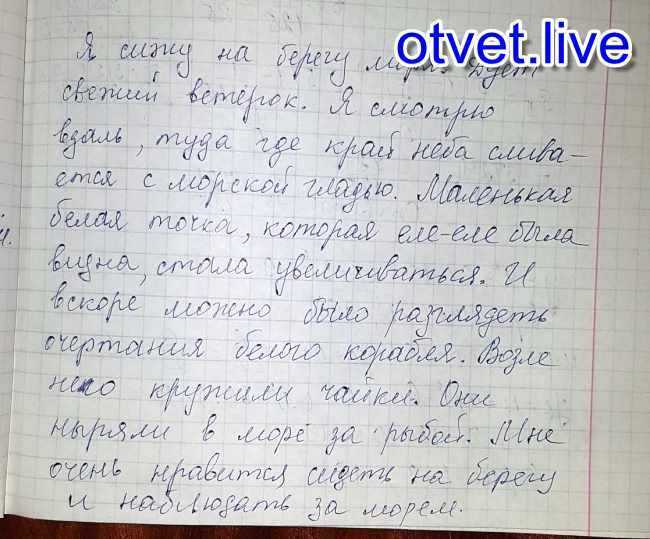 otvet.live
Я сижу на берегу моря. Дует
свежий ветерок. Я смотрю
вдаль, туда где край неба слива-
ется с морской гладью. Маленькая
белая точка, которая еле-еле была
видна, стала увеличиваться. И
вскоре можно было разглядеть
очертания белого корабля. Возле
него кружили чайки. Они
ныряли в море за рыбой. Мне
очень нравится сидеть на берегу
и наблюдать за морем.